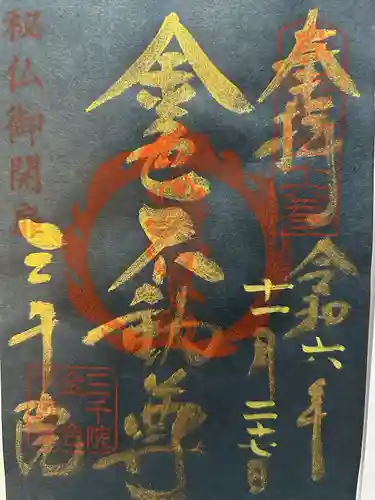 奉拝
令和六年
十一月二七日
金色不動尊
三千院
秘仏御開扉
三千院